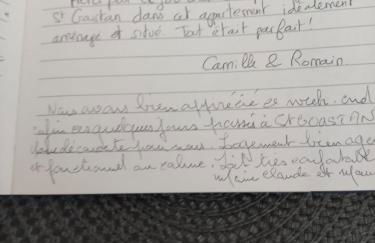 St Goustan dans cet appartement idéalement
aménagé et situé. Tout était parfait!
Camille & Romain
Nous avons bien apprécié ce week-end
quelques jours passés à St GOUSTAN
pour nous. Logement bien
et fonctionnel au calme. Lit très confortable
Claude et